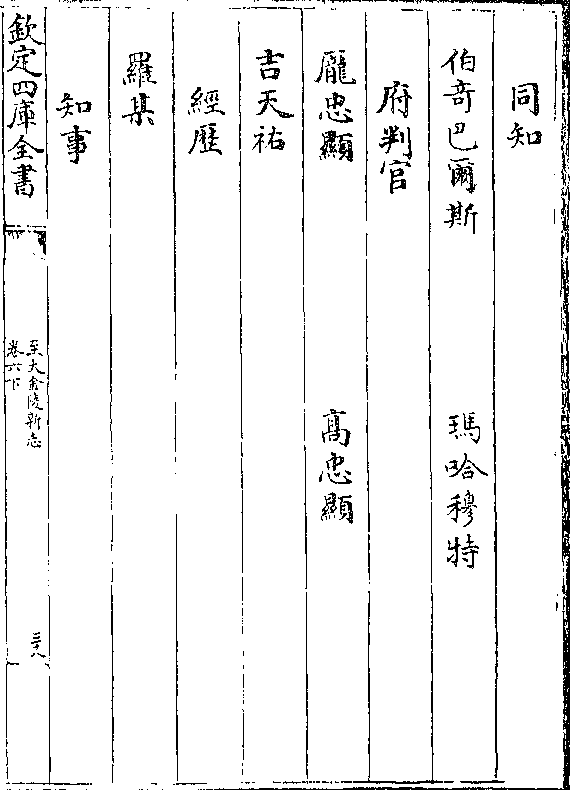 同知
伯竒巴爾斯　瑪哈穆特
府判官
龎忠顯　髙忠顯
吉天祐
經歷
羅某
知事
欽定四庫全書
至大金陵新志
卷六下
三十八